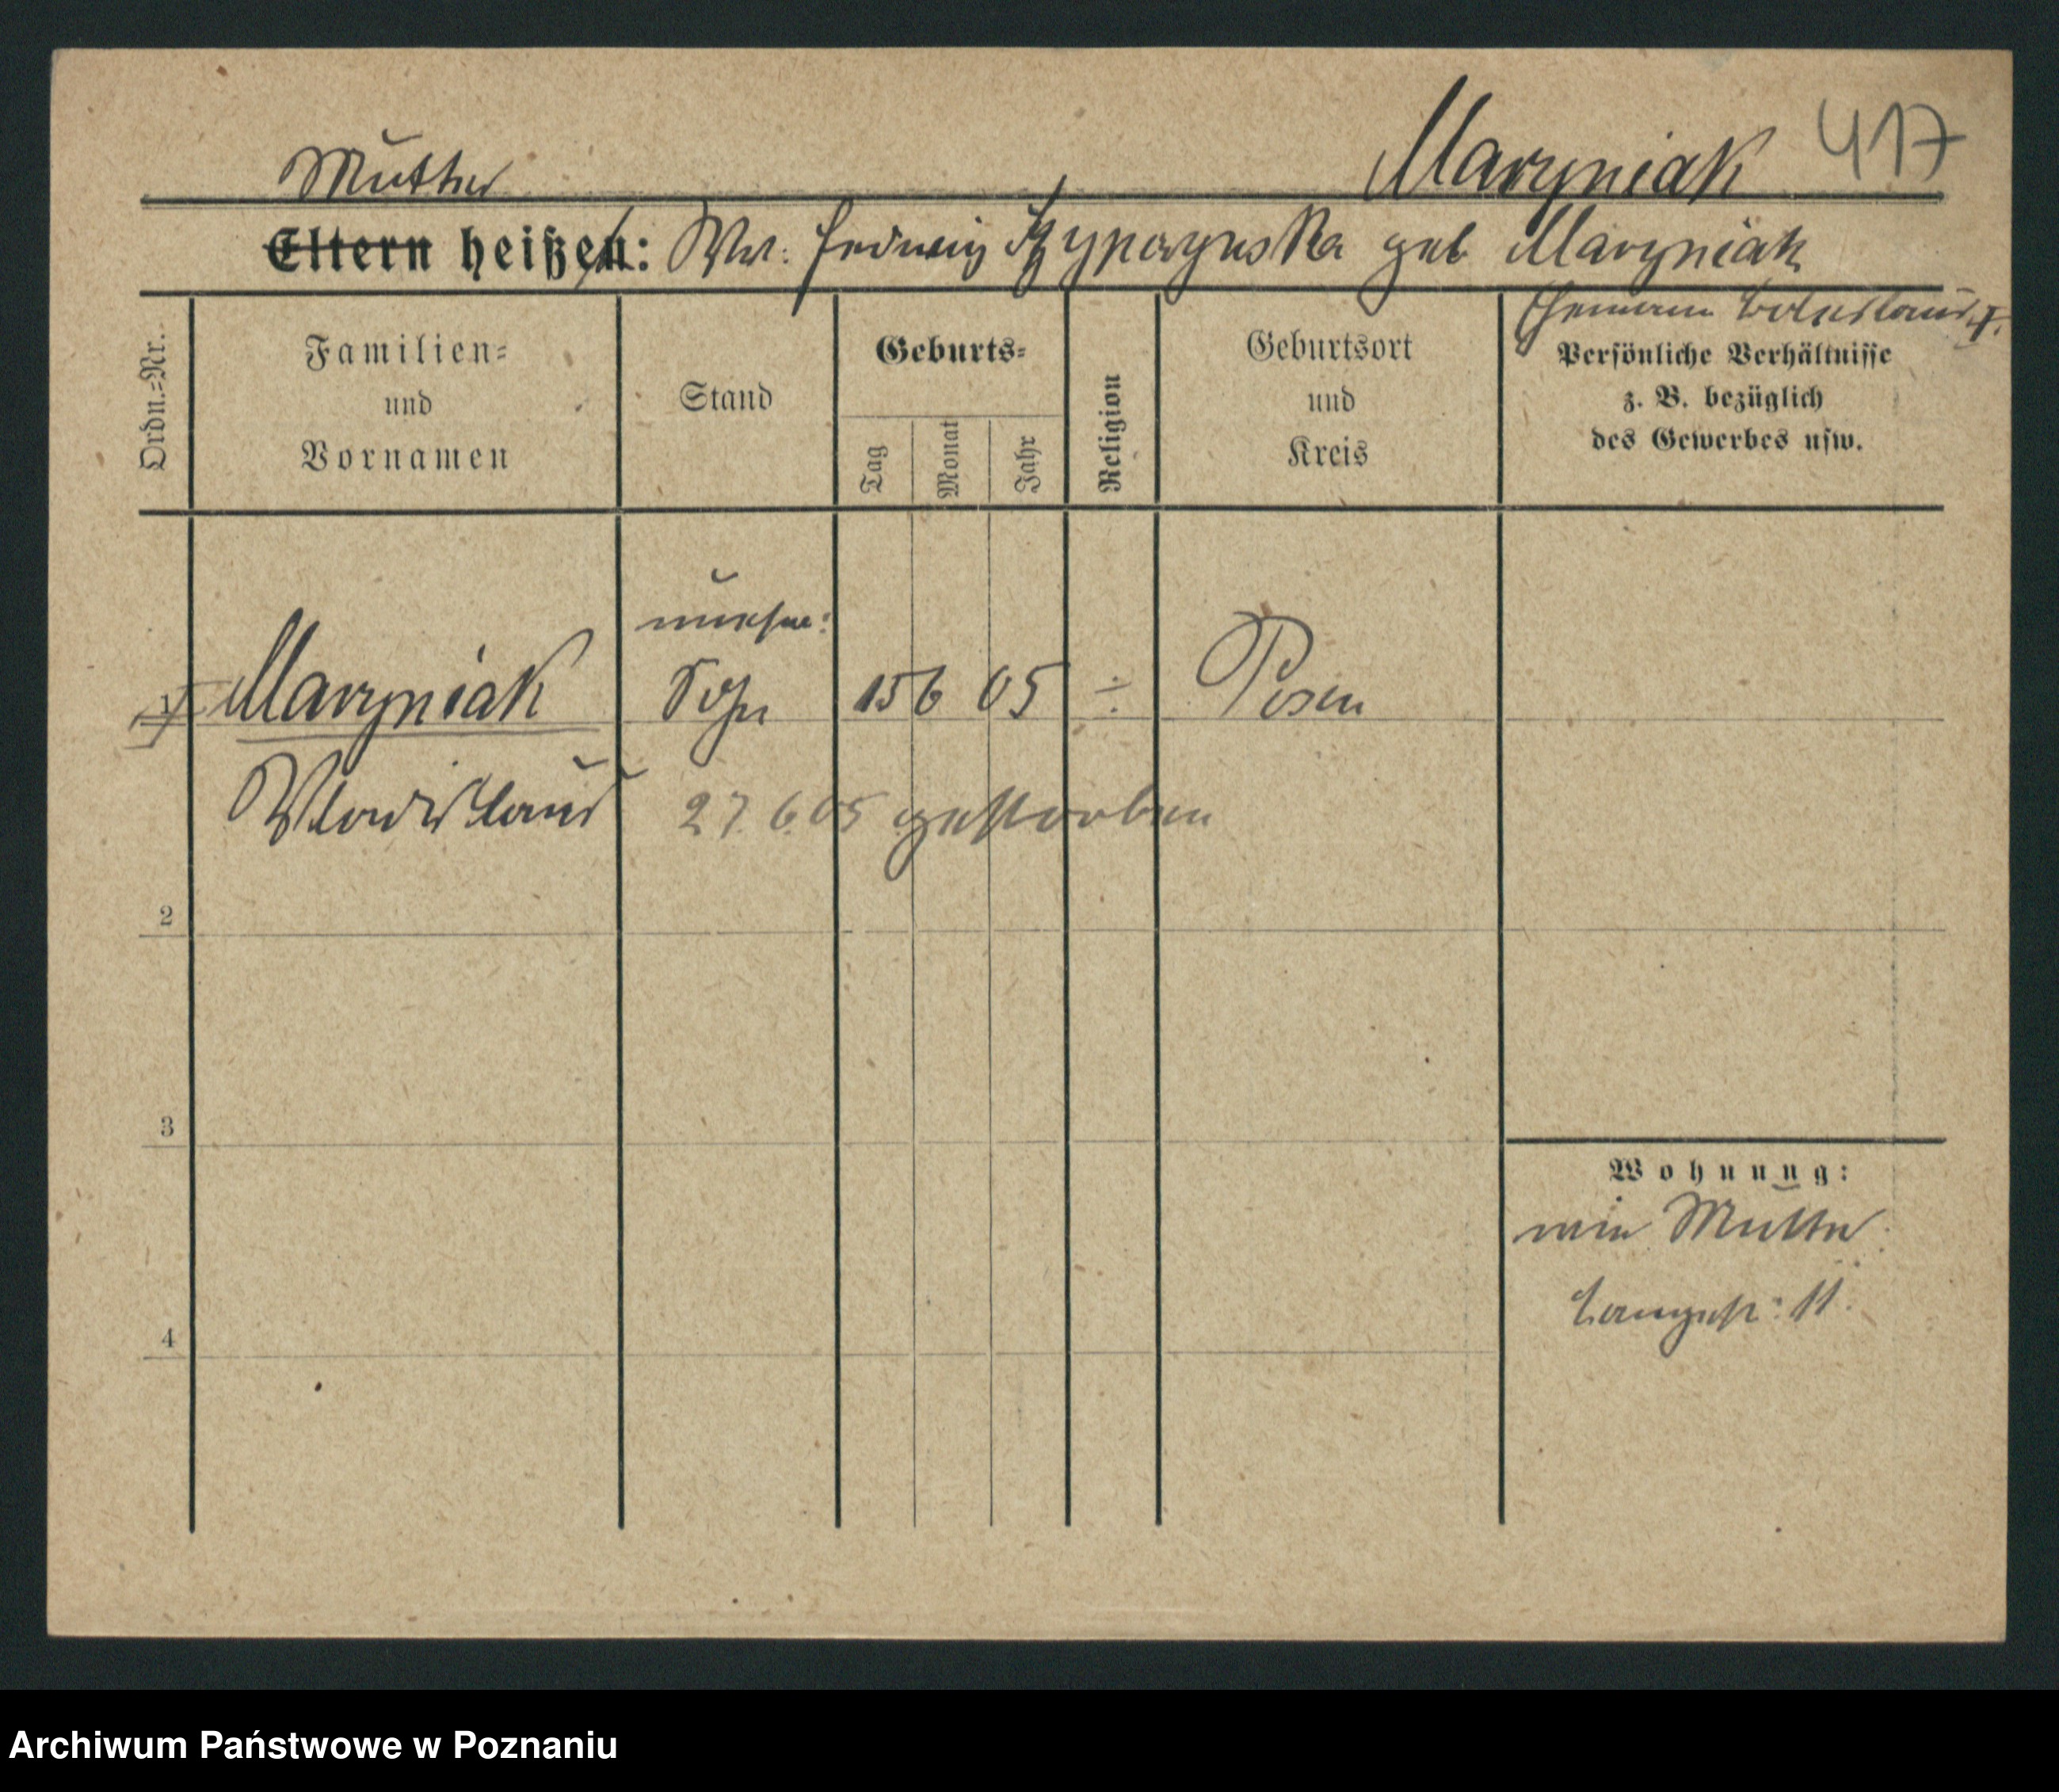 Maryniak 417
Mutter
Eltern heißen: Ww. Hedwig geb Maryniak
Ehemann
Ordn.=Nr.
Familien=
und
Vornamen
Stand
Geburts=
Tag
Monat
Jahr
Religion
Geburtsort
und
Kreis
Persönliche Verhältnisse
z. B. bezüglich
des Gewerbes usw.
unehel:
1 Maryniak Sohn 15 6 05 ÷ Posen
Wladislaus 27.6.05 gestorben
2
3
4
Wohnung:
wie Mutter
Langestr: 11.
Archiwum Państwowe w Poznaniu